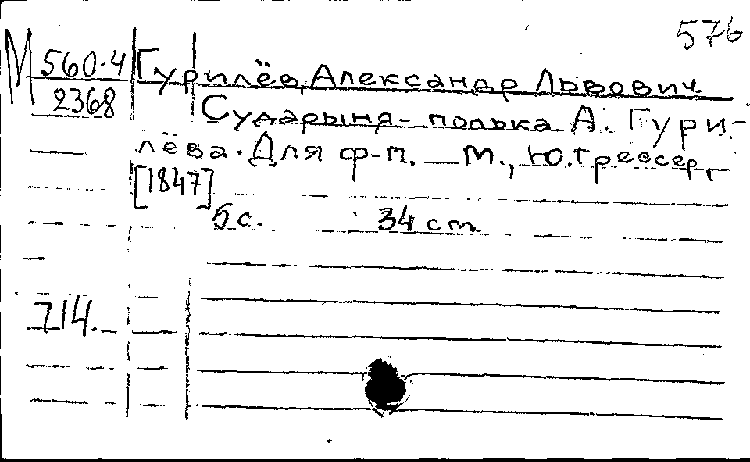 576
М 560-4 Гурилёв, Александр Львович.
2368 Сударыня-полька А. Гури-
лёва. Для ф-п. — М., Ю. Грессер,
[1847]
5 с. 34 cm
714.